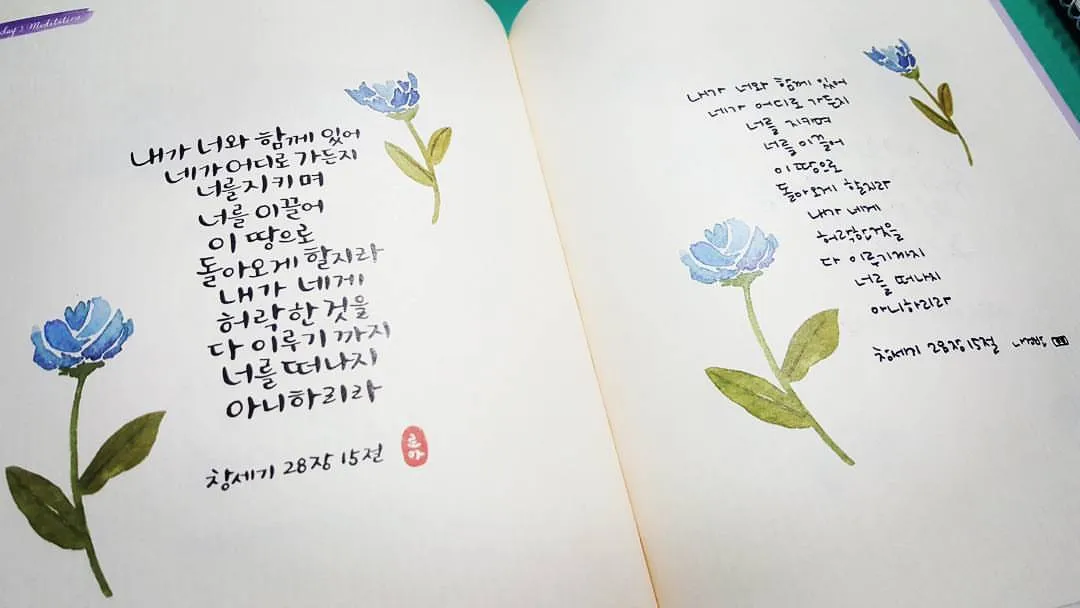 day : Meditation
내가 너와 함께 있어
네가 어디로 가든지
너를 지키며
너를 이끌어
이 땅으로
돌아오게 할지라
내가 네게
허락한 것을
다 이루기까지
너를 떠나지
아니하리라
창세기 28장 15절
내가 너와 함께 있어
네가 어디로 가든지
너를 지키며
너를 이끌어
이 땅으로
돌아오게 할지라
내가 네게
허락한것을
다 이루기까지
너를 떠나지
아니하리라
창세기 28장 15절